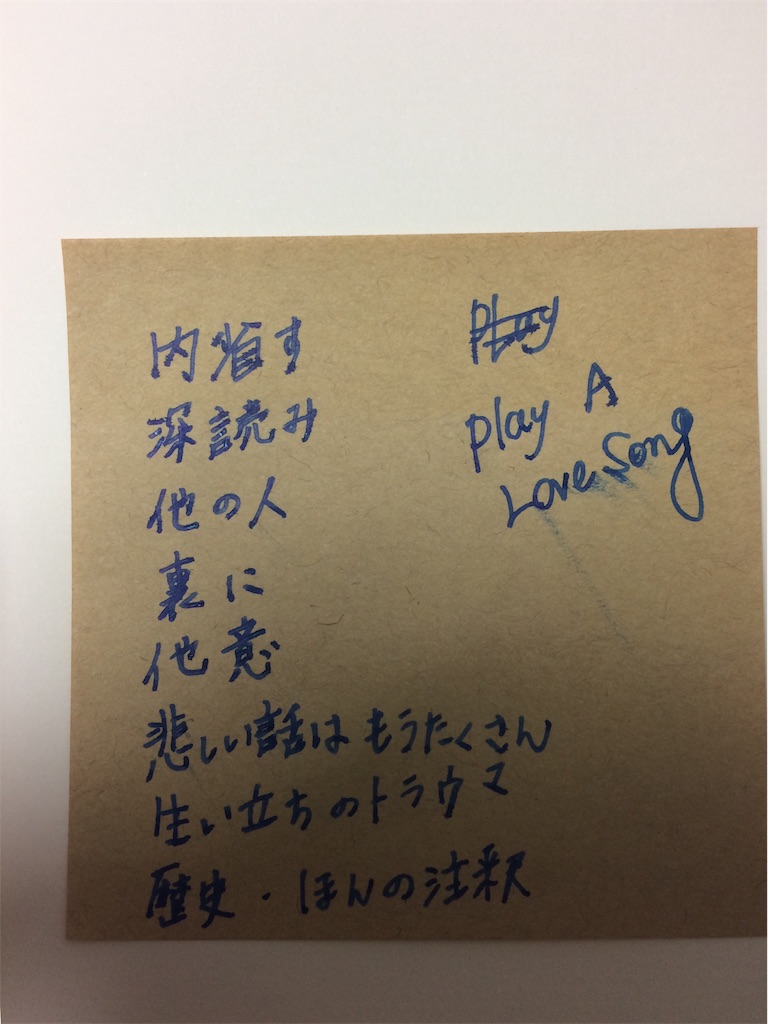 内省す
深読み
他の人
裏に
他意
悲しい話はもうたくさん
生い立ちのトラウマ
歴史・ほんの注釈
Play
play A
Love Song